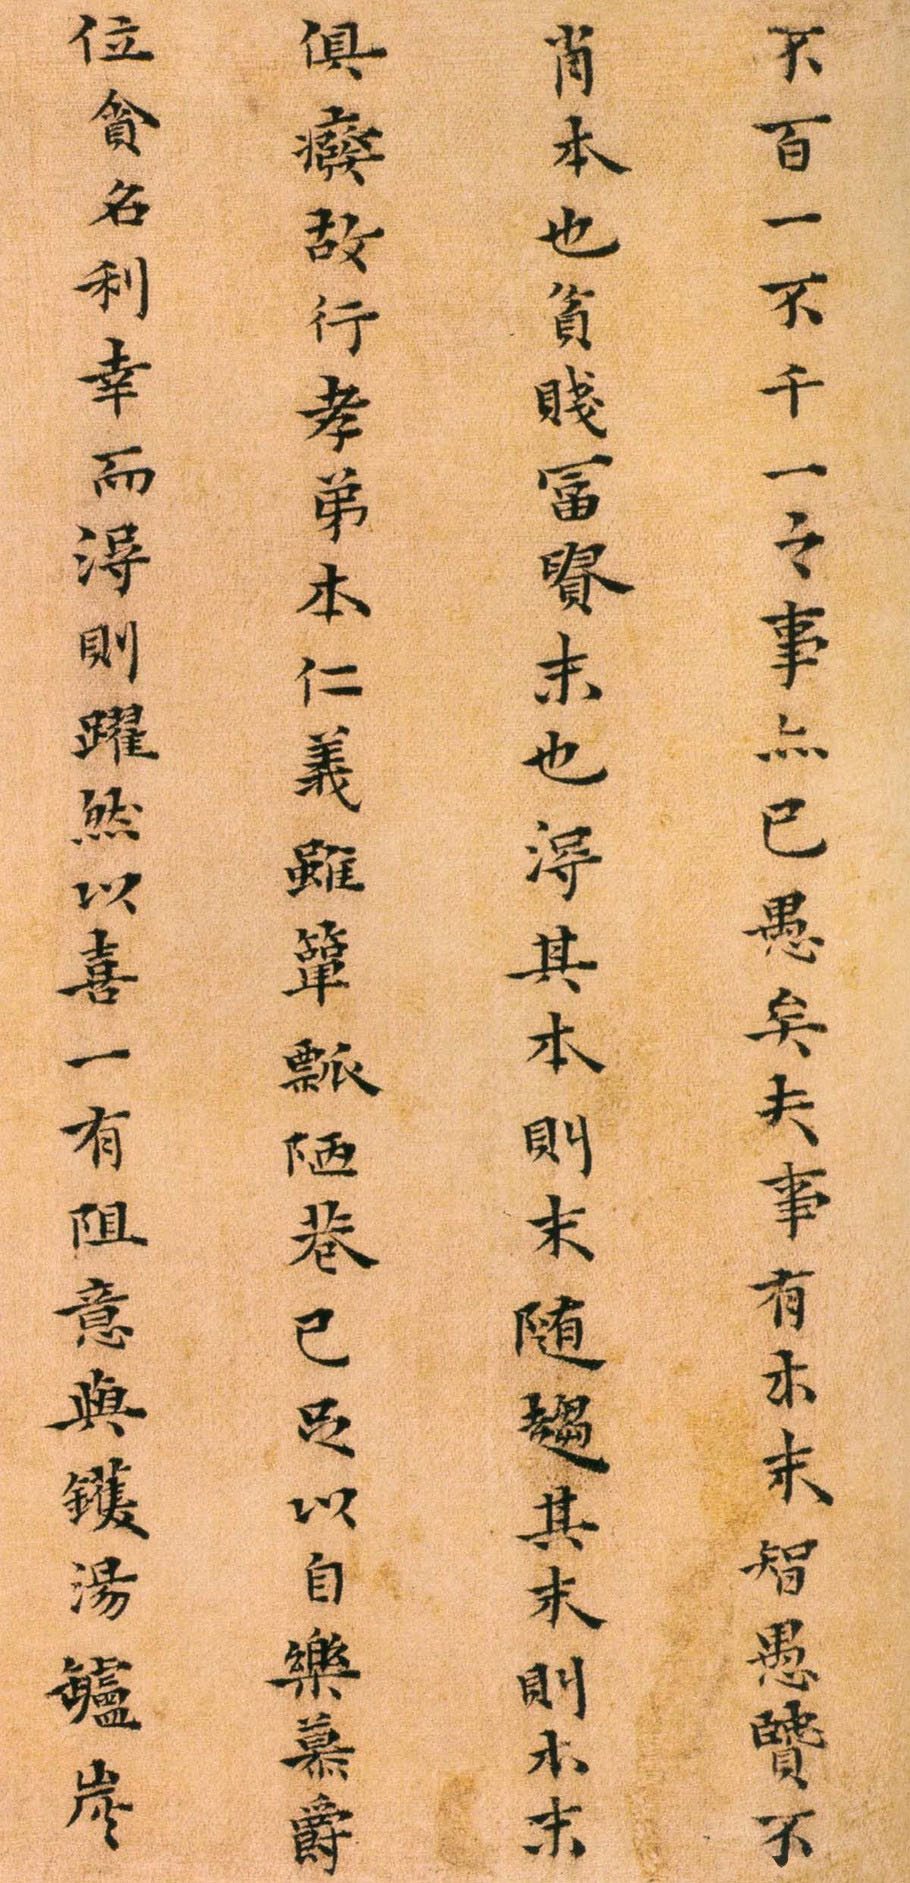 不百一不千一之事亦已愚矣夫事有本末智愚賢不
肖本也貧賤冨貴末也得其本則末随趨其末則本末
俱癈故行孝弟本仁義雖簞瓢陋巷已足以自樂慕爵
位貪名利幸而得則躍然以喜一有阻意與鑊湯罏炭